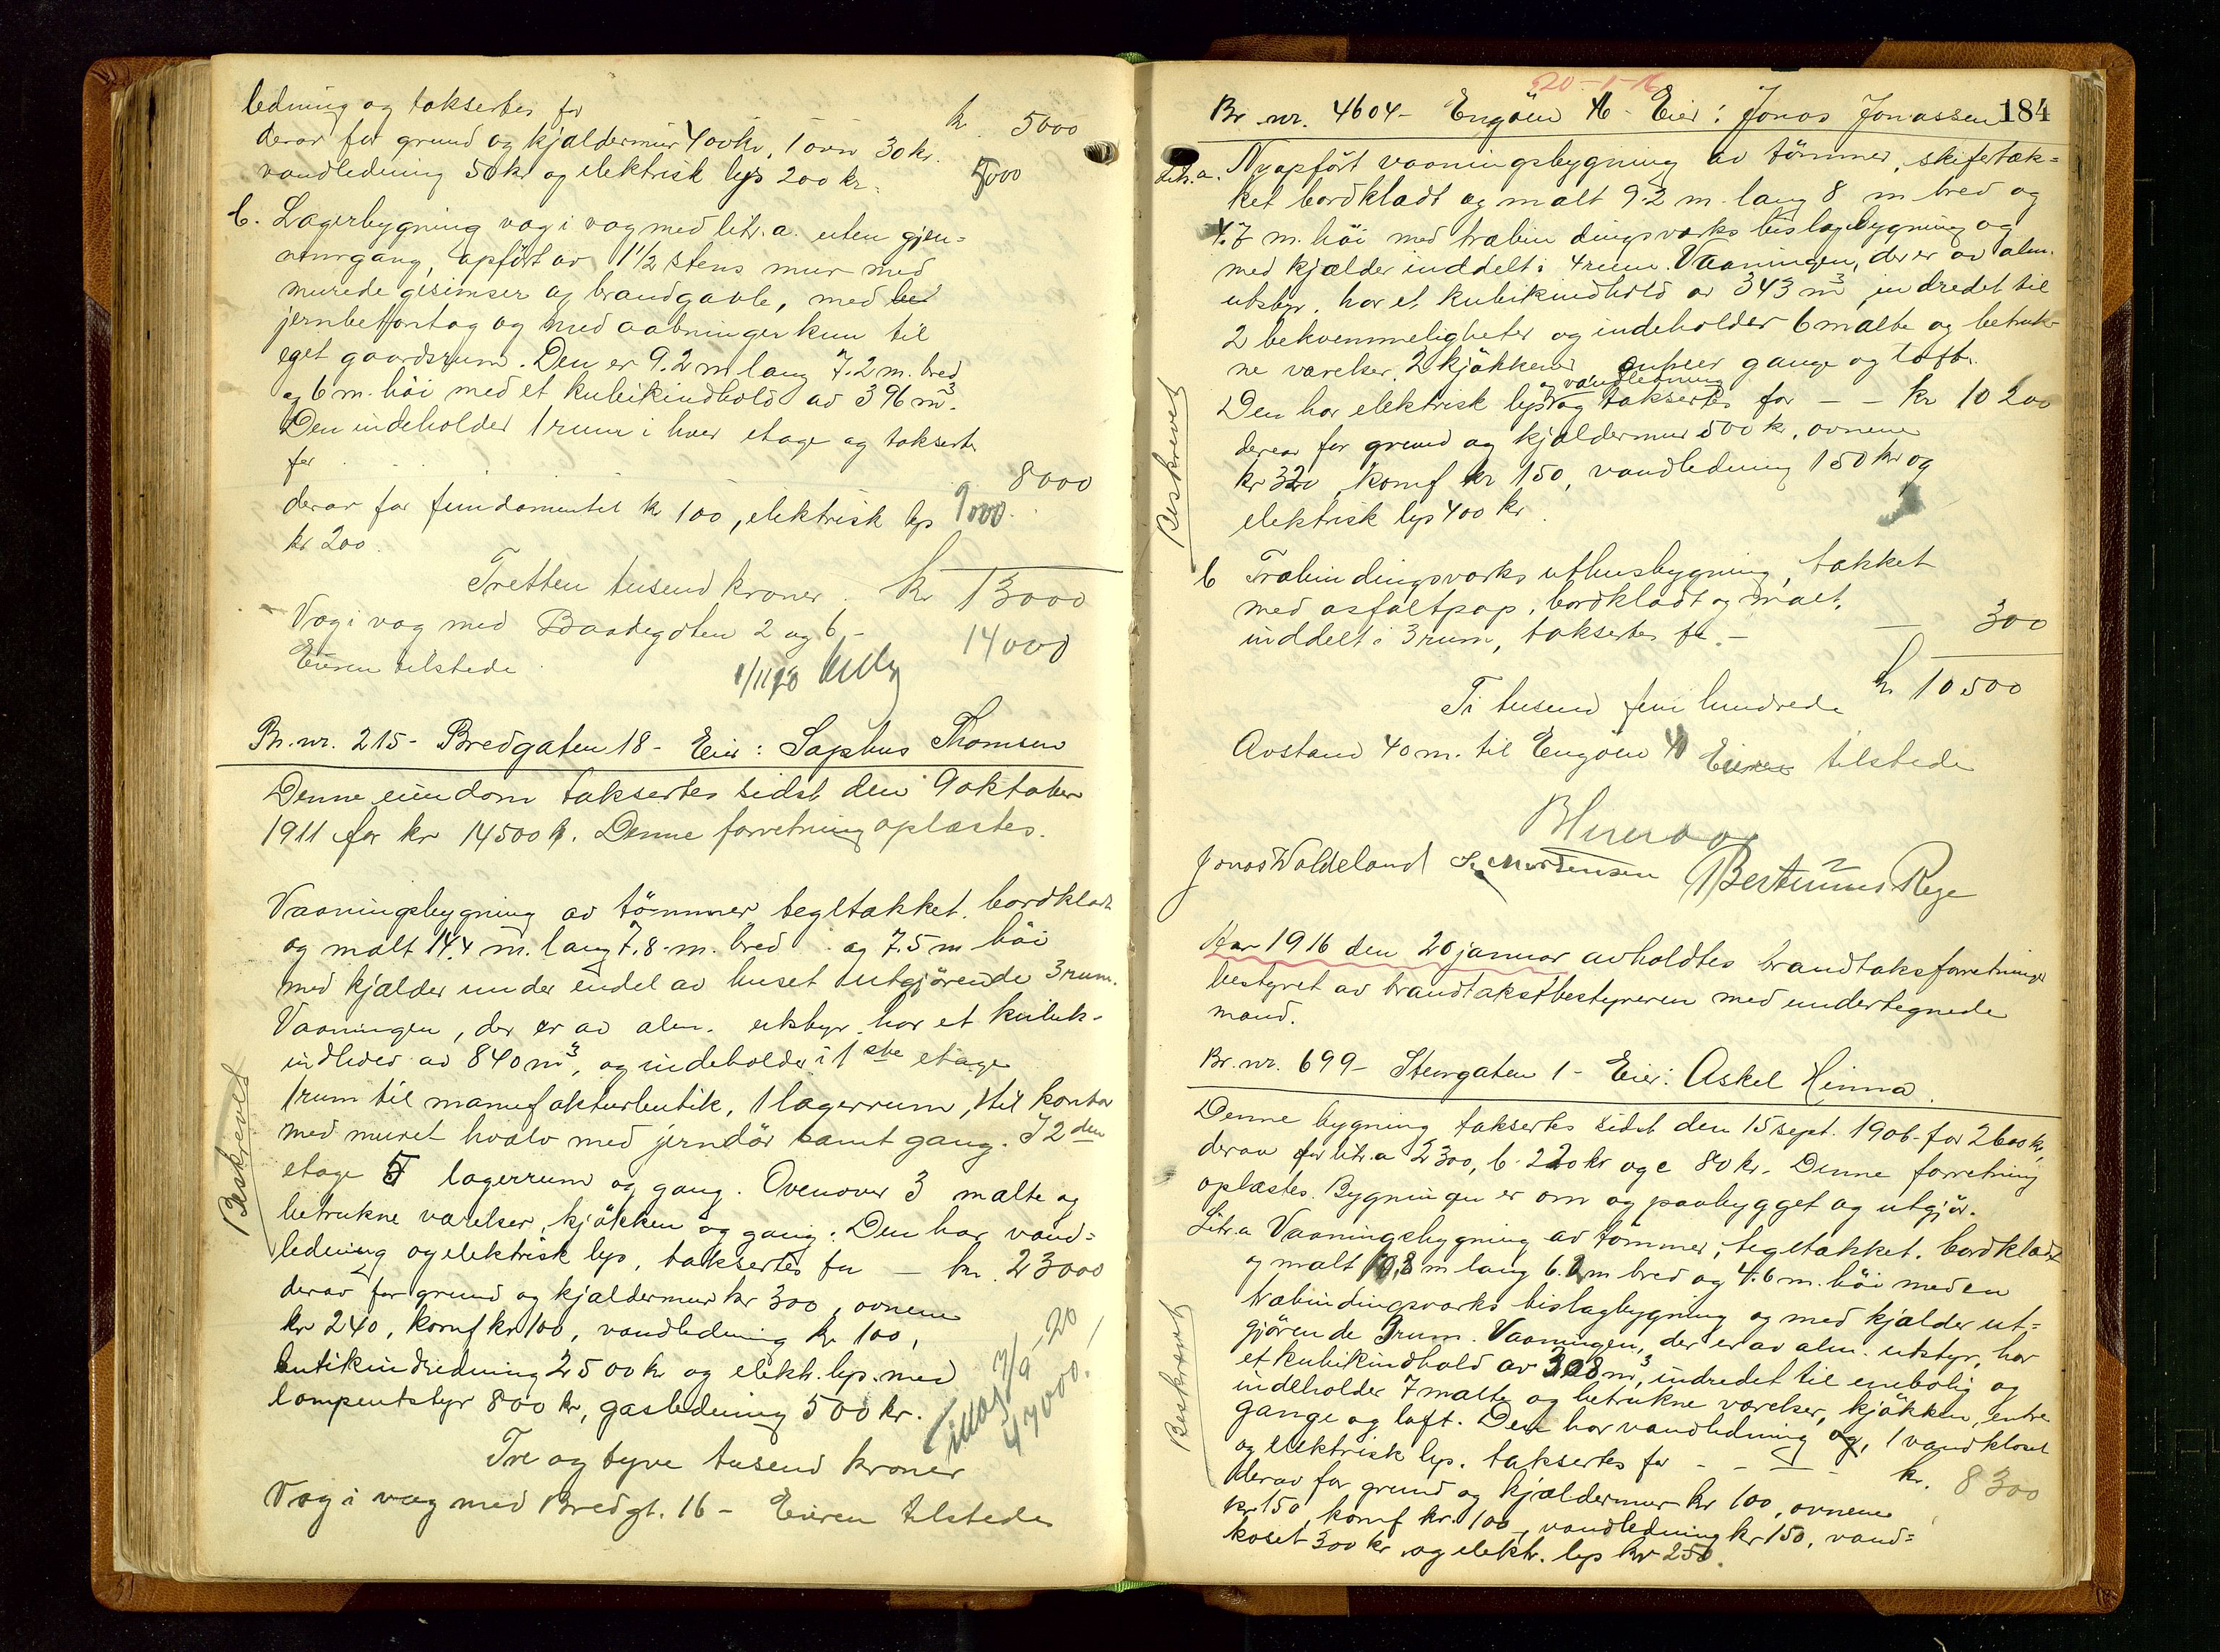 ledning og takseres for kr 5000
derav for grund og kjældermur 400 kr, 1 ovn 30 kr.
vandledning 50 kr og elektrisk lys 200 kr. 5000
b. Lagerbygning væg i væg med litr. a. uten gjen=
nemgang, opført av 1 1/2 stens mur med
murede gesimser og brandgavle, med
jernbetontag og med aabninger kun til
eget gaardsrum. Den er 9.2 m lang 7.2 m. bred
og 6 m. høi med et kubikindhold av 396 m³.
Den indeholder 1 rum i hver etage og takseres
for 8000
derav for fundamentet kr 100, elektrisk lys 9000
kr 200.
Tretten tusend kroner. kr 13000
Væg i væg med Baadegaten 2 og 6 - 14000
Eieren tilstede
Br. nr. 215 - Bredgaten 18 - Eier: Sophus Thomsen
Denne eiendom takseres sidst den 9 oktober
1911 for kr 14500. Denne forretning oplæstes.
Vaaningsbygning av tømmer tegltækket, bordklædt
og malt 14.4 m. lang 7.8 m. bred og 7.5 m høi
med kjælder under endel av huset utgjørende 3 rum.
Vaaningen, der er av alm. utstyr har et kubik-
indhold av 840 m³, og indeholder i 1ste etage
1 rum til manufakturbutik, 1 lagerrum, 1 til kontor
med muret hvælv med jerndør samt gang. I 2den
etage 5 lagerrum og gang. Ovenover 3 malte og
betrukne værelser, kjøkken og gang. Den har vand=
ledning og elektrisk lys, takseres for - kr. 23000
derav for grund og kjældermur kr 300, ovnene
kr 240, komf kr 100, vandledning kr 100,
butikindredning 2500 kr og elektr. lys med
lampeutstyr 800 kr, gasledning 500 kr.
Tillæg 7/9-20
47000.-
Tre og tyve tusend kroner
Væg i væg med Bredgt. 16 - Eieren tilstede
Beskrevet
20-1-16
184
Br. nr. 4604 - Engøen - Eier: Jonas Jonassen
Litr. a. Nyopført vaaningsbygning av tømmer, skifertæk=
ket bordklædt og malt 9.2 m. lang 8 m bred og
4.7 m. høi med træbindingsverks bislagbygning og
med kjælder inddelt i 4 rum. Vaaningen, der er av alm.
utstyr, har et kubikindhold av 343 m³, indredet til
2 bekvemmeligheter og indeholder 6 malte og betruk-
ne værelser, 2 kjøkkener entreer gange og loft.
og vandledning
Den har elektrisk lys og takseres for - - kr 10200
derav for grund og kjældermur 500 kr, ovnene
kr 320, komf kr 150, vandledning 150 kr og
elektrisk lys 400 kr.
Beskrevet
b Træbindingsverks uthusbygning, tækket
med asfaltpap, bordklædt og malt,
inddelt i 3 rum, takseres for. - - 300
kr 10500
Ti tusend fem hundrede
Avstand 40 m. til Engøen Eieren tilstede
Jonas Waldeland S. Mortensen Bertinius Rege
Aar 1916 den 20 januar avholdtes brandtakstforretninger
bestyret av brandtakstbestyreren med undertegnede
mænd.
Br. nr. 699 - Stengaten 1 - Eier: Askel Hinna.
Denne bygning takseres sidst den 15 sept. 1906 for 2600 kr,
derav for litr. a 2300, b. 220 kr og c 80 kr. Denne forretning
oplæstes. Bygningen er om og paabygget og utgjør.
Litr. a Vaaningsbygning av tømmer, tegltækket, bordklædt
og malt 10.8 m lang 6.2 m bred og 4.6 m. høi med en
træbindingsverks bislagbygning og med kjælder ut=
gjørende 3 rum. Vaaningen, der er av alm. utstyr, har
et kubikindhold av 308 m³, indredet til enebolig og
indeholder 7 malte og betrukne værelser, kjøkken, entre
gange og loft. Den har vandledning, 1 vandkloset
og elektrisk lys, takseres for - - - - kr. 8300
derav for grund og kjældermur kr 100, ovnene
kr 150, komf kr. 100, vandledning kr 150, vand=
koset 300 kr og elektr. lys kr 250.
Beskrevet